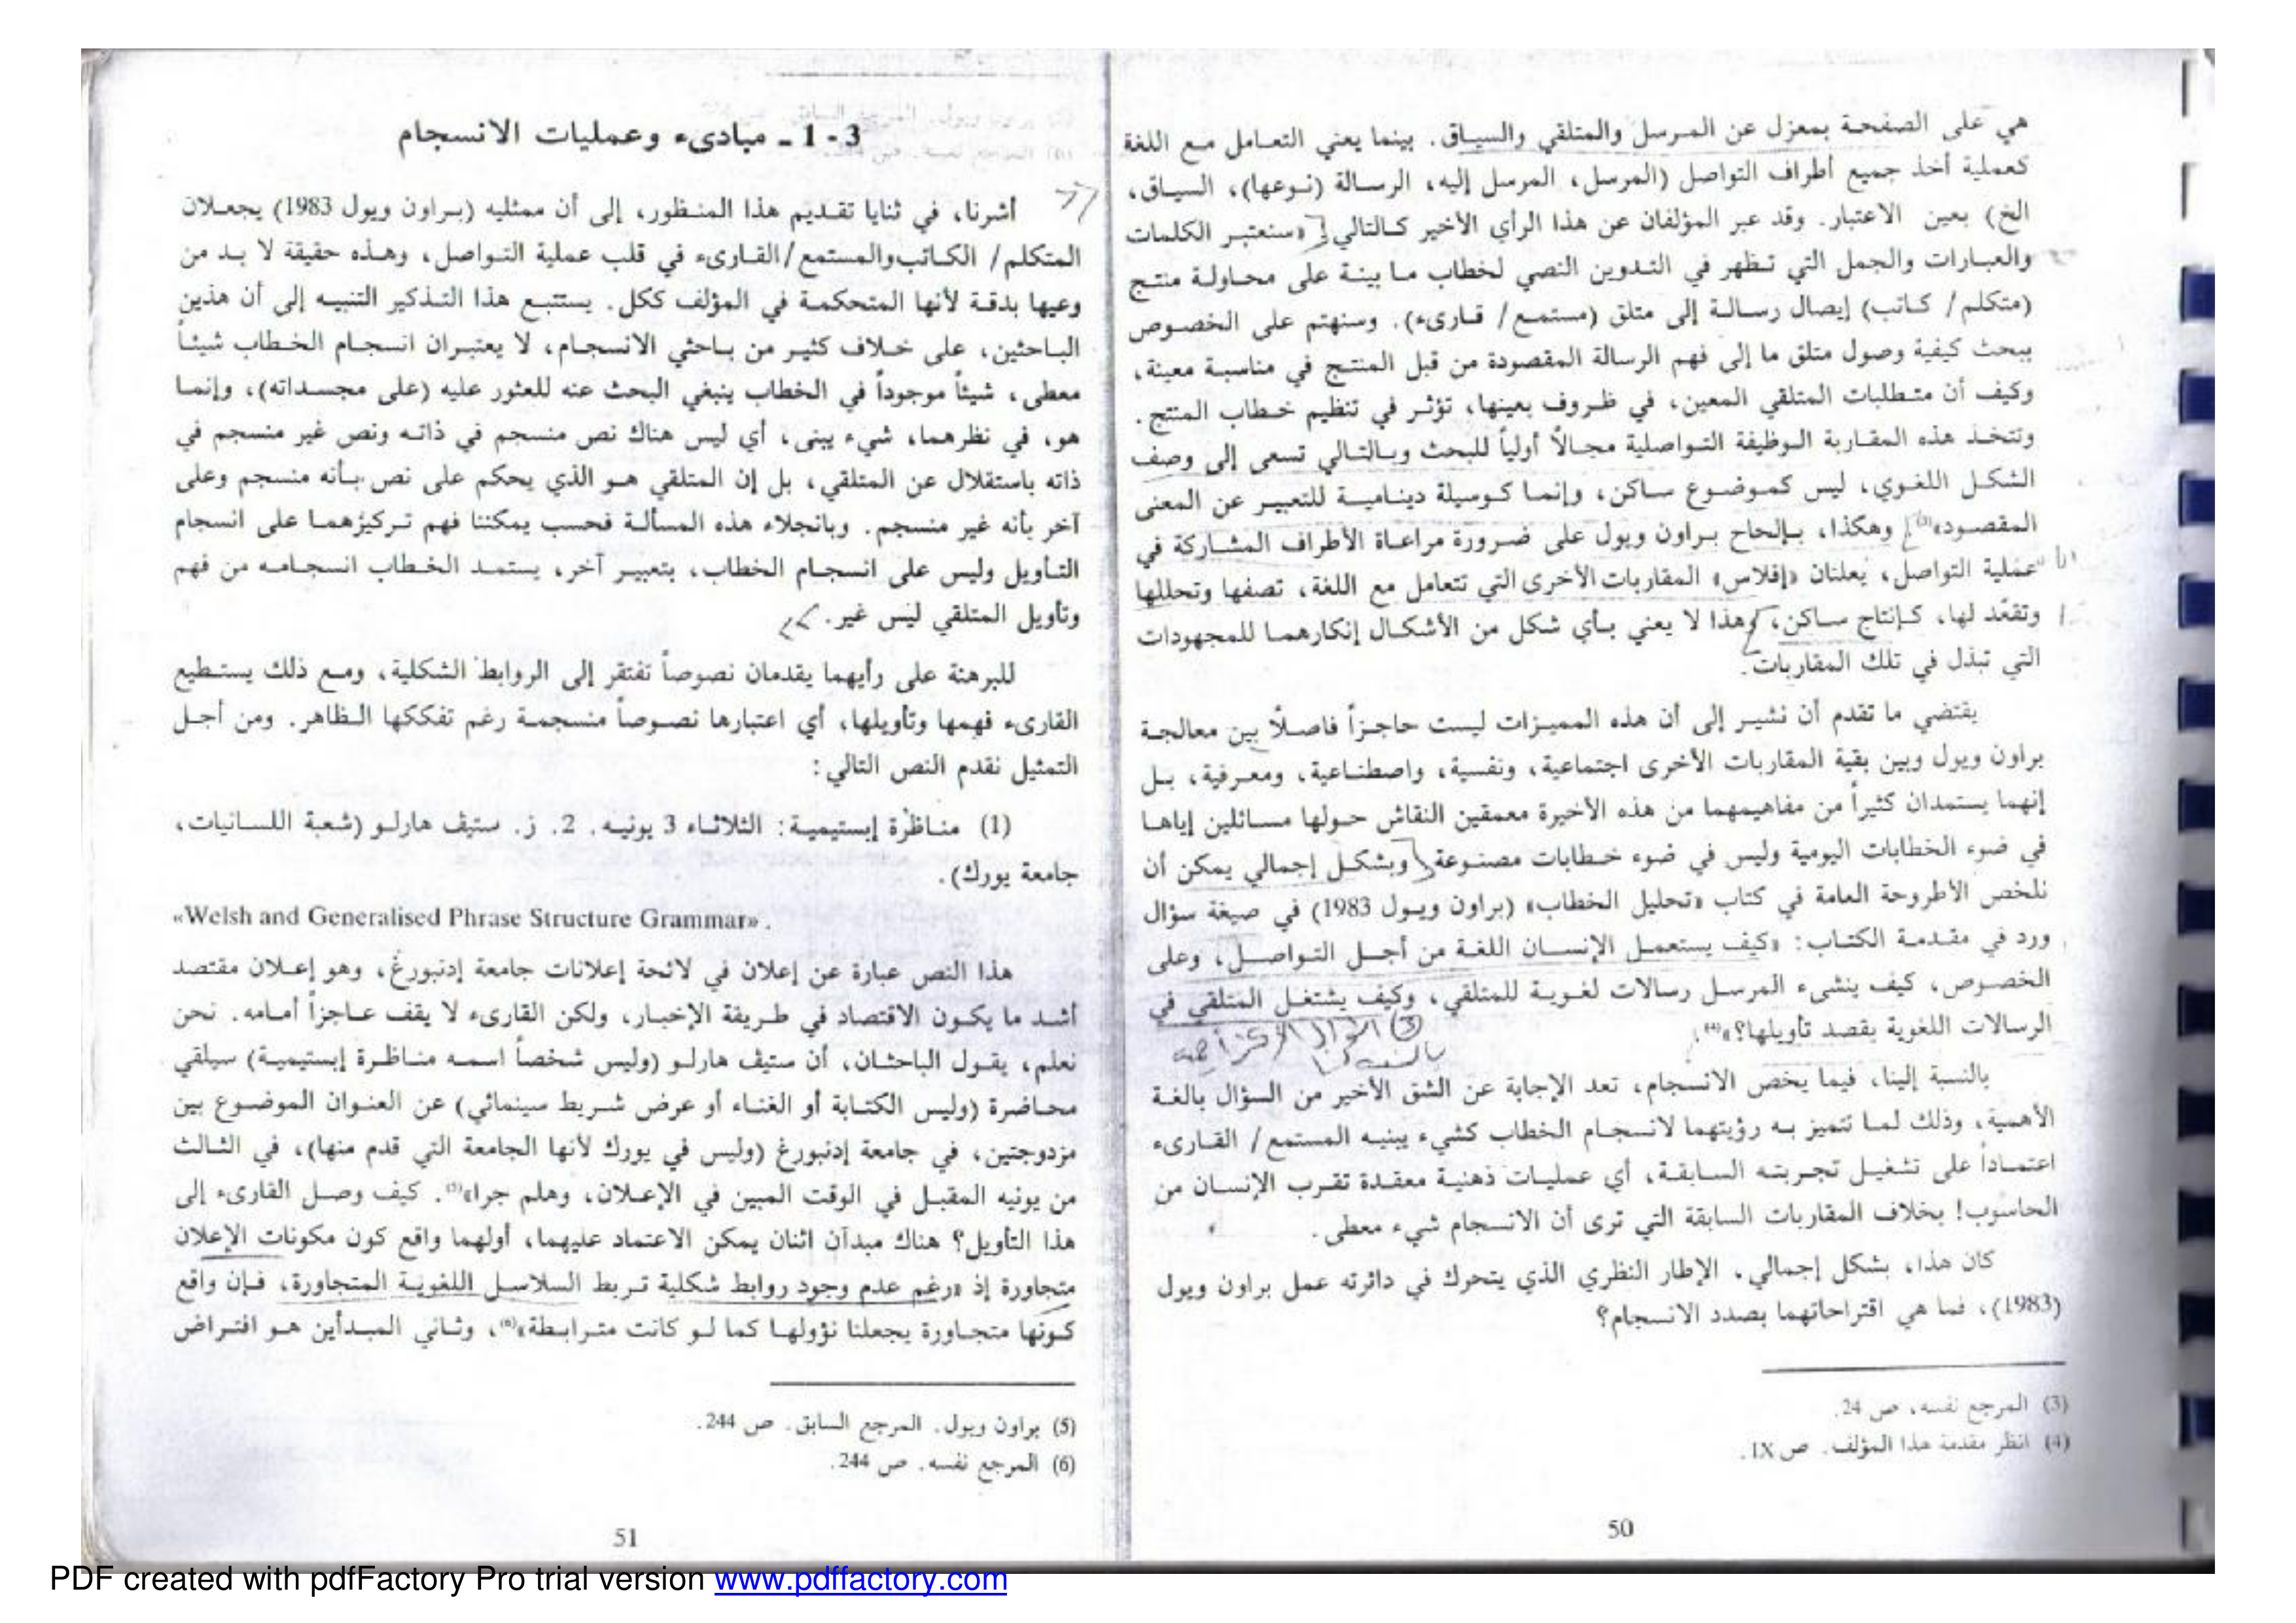 هي على الصفحة بمعزل عن المرسل والمتلقي والسياق. بينما يعني التعامل مع اللغة
كعملية أخذ جميع أطراف التواصل (المرسل، المرسل إليه، الرسالة (نوعها)، السياق،
الخ) بعين الاعتبار. وقد عبر المؤلفان عن هذا الرأي الأخير كالتالي «سنعتبر الكلمات
والعبارات والجمل التي تظهر في التدوين النصي لخطاب ما بينة على محاولة منتج
(متكلم/ كاتب) إيصال رسالة إلى متلق (مستمع/ قارىء). وسنهتم على الخصوص
ببحث كيفية وصول متلق ما إلى فهم الرسالة المقصودة من قبل المنتج في مناسبة معينة،
وكيف أن متطلبات المتلقي المعين، في ظروف بعينها، تؤثر في تنظيم خطاب المنتج.
وتتخذ هذه المقاربة الوظيفة التواصلية مجالاً أولياً للبحث وبالتالي تسعى إلى وصف
الشكل اللغوي، ليس كموضوع ساكن، وإنما كوسيلة دينامية للتعبير عن المعنى
المقصود»(3) وهكذا، بإلحاح براون ويول على ضرورة مراعاة الأطراف المشاركة في
عملية التواصل، يعلنان «إفلاس» المقاربات الأخرى التي تتعامل مع اللغة، تصفها وتحللها
وتقعّد لها، كإنتاج ساكن، وهذا لا يعني بأي شكل من الأشكال إنكارهما للمجهودات
التي تبذل في تلك المقاربات.
يقتضي ما تقدم أن نشير إلى أن هذه المميزات ليست حاجزاً فاصلاً بين معالجة
براون ويول وبين بقية المقاربات الأخرى اجتماعية، ونفسية، واصطناعية، ومعرفية، بل
إنهما يستمدان كثيراً من مفاهيمهما من هذه الأخيرة معمقين النقاش حولها مسائلين إياها
في ضوء الخطابات اليومية وليس في ضوء خطابات مصنوعة وبشكل إجمالي يمكن أن
نلخص الأطروحة العامة في كتاب «تحليل الخطاب» (براون ويول 1983) في صيغة سؤال
ورد في مقدمة الكتاب: «كيف يستعمل الإنسان اللغة من أجل التواصل، وعلى
الخصوص، كيف ينشىء المرسل رسالات لغوية للمتلقي، وكيف يشتغل المتلقي في
الرسالات اللغوية بقصد تأويلها؟»(4).
بالنسبة إلينا، فيما يخص الانسجام، تعد الإجابة عن الشق الأخير من السؤال بالغة
الأهمية، وذلك لما تتميز به رؤيتهما لانسجام الخطاب كشيء يبنيه المستمع/ القارىء
اعتماداً على تشغيل تجربته السابقة، أي عمليات ذهنية معقدة تقرب الإنسان من
الحاسوب! بخلاف المقاربات السابقة التي ترى أن الانسجام شيء معطى.
كان هذا، بشكل إجمالي، الإطار النظري الذي يتحرك في دائرته عمل براون ويول
(1983)، فما هي اقتراحاتهما بصدد الانسجام؟
(3) المرجع نفسه، ص 24.
(4) انظر مقدمة هذا المؤلف. ص IX.
50
3 - 1 ـ مبادىء وعمليات الانسجام
أشرنا، في ثنايا تقديم هذا المنظور، إلى أن ممثليه (براون ويول 1983) يجعلان
المتكلم/ الكاتب والمستمع/القارىء في قلب عملية التواصل، وهذه حقيقة لا بد من
وعيها بدقة لأنها المتحكمة في المؤلف ككل. يستتبع هذا التذكير التنبيه إلى أن هذين
الباحثين، على خلاف كثير من باحثي الانسجام، لا يعتبران انسجام الخطاب شيئاً
معطى، شيئاً موجوداً في الخطاب ينبغي البحث عنه للعثور عليه (على مجسداته)، وإنما
هو، في نظرهما، شيء يبنى، أي ليس هناك نص منسجم في ذاته ونص غير منسجم في
ذاته باستقلال عن المتلقي، بل إن المتلقي هو الذي يحكم على نص بأنه منسجم وعلى
آخر بأنه غير منسجم. وبانجلاء هذه المسألة فحسب يمكننا فهم تركيزهما على انسجام
التأويل وليس على انسجام الخطاب، بتعبير آخر، يستمد الخطاب انسجامه من فهم
وتأويل المتلقي ليس غير.
للبرهنة على رأيهما يقدمان نصوصاً تفتقر إلى الروابط الشكلية، ومع ذلك يستطيع
القارىء فهمها وتأويلها، أي اعتبارها نصوصاً منسجمة رغم تفككها الظاهر. ومن أجل
التمثيل نقدم النص التالي:
(1) مناظرة إبستيمية: الثلاثاء 3 يونيه. 2. ز. ستيف هارلو (شعبة اللسانيات،
جامعة يورك).
«Welsh and Generalised Phrase Structure Grammar».
هذا النص عبارة عن إعلان في لائحة إعلانات جامعة إدنبورغ، وهو إعلان مقتصد
أشد ما يكون الاقتصاد في طريقة الإخبار، ولكن القارىء لا يقف عاجزاً أمامه. نحن
نعلم، يقول الباحثان، أن ستيف هارلو (وليس شخصاً اسمه مناظرة إبستيمية) سيلقي
محاضرة (وليس الكتابة أو الغناء أو عرض شريط سينمائي) عن العنوان الموضوع بين
مزدوجتين، في جامعة إدنبورغ (وليس في يورك لأنها الجامعة التي قدم منها)، في الثالث
من يونيه المقبل في الوقت المبين في الإعلان، وهلم جرا»(5). كيف وصل القارىء إلى
هذا التأويل؟ هناك مبدآن اثنان يمكن الاعتماد عليهما، أولهما واقع كون مكونات الإعلان
متجاورة إذ «رغم عدم وجود روابط شكلية تربط السلاسل اللغوية المتجاورة، فإن واقع
كونها متجاورة يجعلنا نؤولها كما لو كانت مترابطة»(6)، وثاني المبدأين هو افتراض
(5) براون ويول. المرجع السابق. ص 244.
(6) المرجع نفسه. ص 244.
51
PDF created with pdfFactory Pro trial version www.pdffactory.com